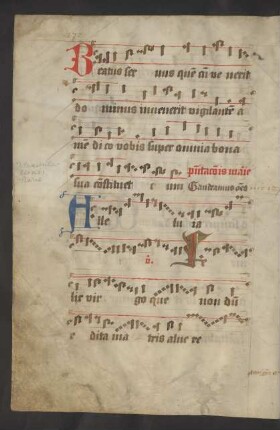 Beatus ser uus quē cū ve nerit
do minus invenerit vigilantē a
mē di co vobis super omnia bona
sua cōstituet e um Gaudeamus oēs
Alle lu ia
℣.
lie vir go que non dū
e dita ma tris alue re